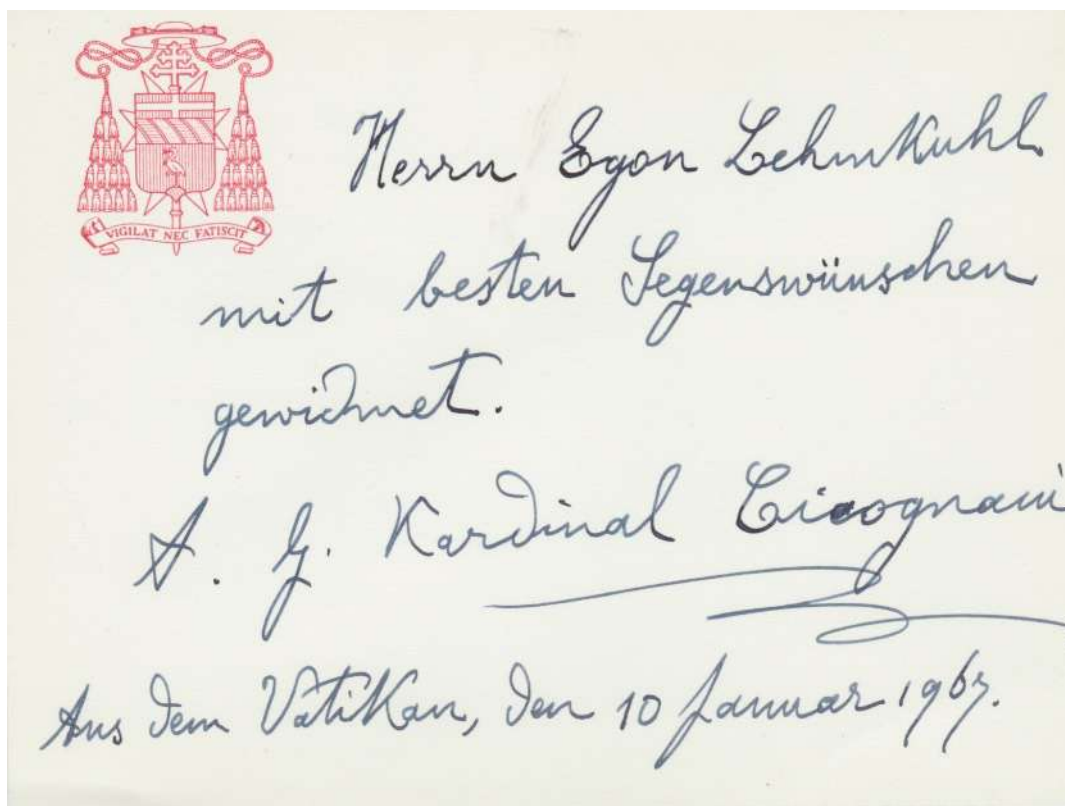 VIGILAT NEC FATISCIT
Herrn Egon Lehmkuhl
mit besten Segenswünschen
gewidmet.
A. G. Kardinal Cicognani
Aus dem Vatikan, den 10 Januar 1967.